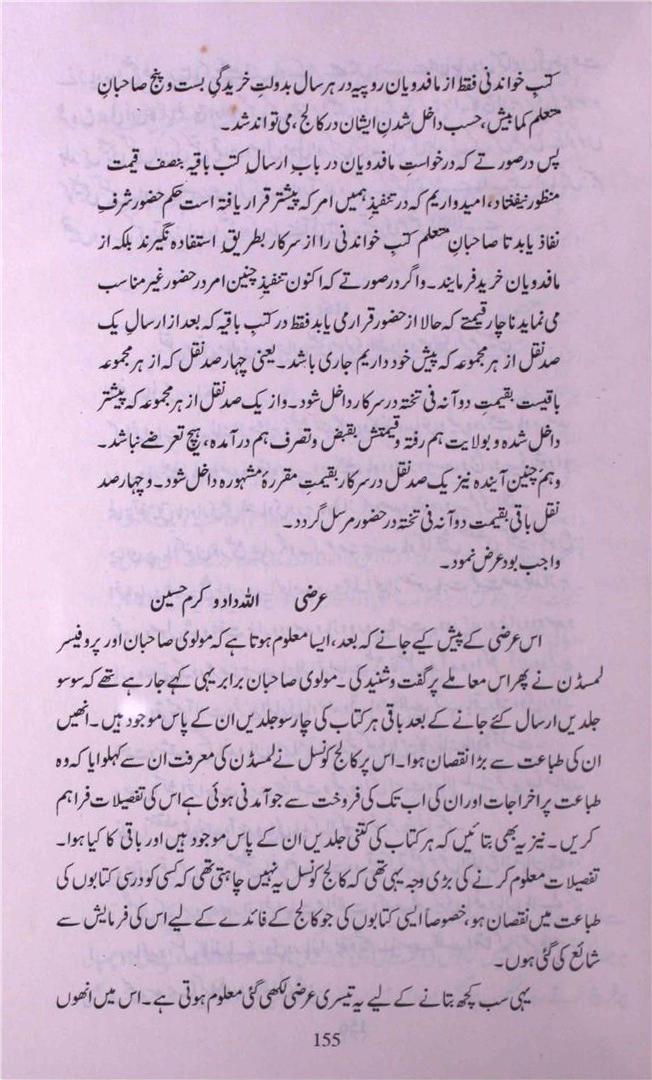 کتبِ خواندنی فقط از مافدویان روپیہ در ہر سال بدولتِ خریدگیِ بست و پنج صاحبانِ
متعلم کمابیش، حسب داخل شدنِ ایشان در کالج، می تواند شد۔
پس در صورتے کہ درخواستِ مافدویان در بابِ ارسالِ کتب باقیہ بنصف قیمت
منظور نیفتاد، امیدواریم کہ در تنفیذِ ہمیں امر کہ پیشتر قرار یافتہ است حکم حضور شرفِ
نفاذ یابد تا صاحبانِ متعلم کتبِ خواندنی را از سرکار بطریقِ استفادہ نگیرند بلکہ از
مافدویان خرید فرمایند۔ و اگر در صورتے کہ اکنون تنفیذِ چنین امر در حضور غیر مناسب
می نماید ناچار قیمتے کہ حالا از حضور قرار می یابد فقط در کتب باقیہ کہ بعد از ارسالِ یک
صد نقل از ہر مجموعہ کہ پیش خود داریم جاری باشد۔ یعنی چہار صد نقل کہ از ہر مجموعہ
باقیست بقیمتِ دو آنہ فی تختہ در سرکار داخل شود۔ و از یک صد نقل از ہر مجموعہ کہ پیشتر
داخل شدہ و بولایت ہم رفتہ و قیمتش بقبض و تصرف ہم در آمدہ، ہیچ تعرضے نباشد۔
و ہم چنین آیندہ نیز یک صد نقل در سرکار بقیمتِ مقررۂ مشہورہ داخل شود۔ و چہار صد
نقل باقی بقیمت دو آنہ فی تختہ در حضور مرسل گردد۔
واجب بود عرض نمود۔
عرضی اللہ داد و کرم حسین
اس عرضی کے پیش کیے جانے کہ بعد، ایسا معلوم ہوتا ہے کہ مولوی صاحبان اور پروفیسر
لمسڈن نے پھر اس معاملے پر گفت و شنید کی۔ مولوی صاحبان برابر یہی کہے جا رہے تھے کہ سو سو
جلدیں ارسال کئے جانے کے بعد باقی ہر کتاب کی چار سو جلدیں ان کے پاس موجود ہیں۔ انھیں
ان کی طباعت سے بڑا نقصان ہوا۔ اس پر کالج کونسل نے لمسڈن کی معرفت ان سے کہلوایا کہ وہ
طباعت پر اخراجات اور ان کی اب تک کی فروخت سے جو آمدنی ہوئی ہے اس کی تفصیلات فراہم
کریں۔ نیز یہ بھی بتائیں کہ ہر کتاب کی کتنی جلدیں ان کے پاس موجود ہیں اور باقی کا کیا ہوا۔
تفصیلات معلوم کرنے کی بڑی وجہ یہی تھی کہ کالج کونسل یہ نہیں چاہتی تھی کہ کسی کو درسی کتابوں کی
طباعت میں نقصان ہو، خصوصاً ایسی کتابوں کی جو کالج کے فائدے کے لیے اس کی فرمایش سے
شائع کی گئی ہوں۔
یہی سب کچھ بتانے کے لیے یہ تیسری عرضی لکھی گئی معلوم ہوتی ہے۔ اس میں انھوں
155